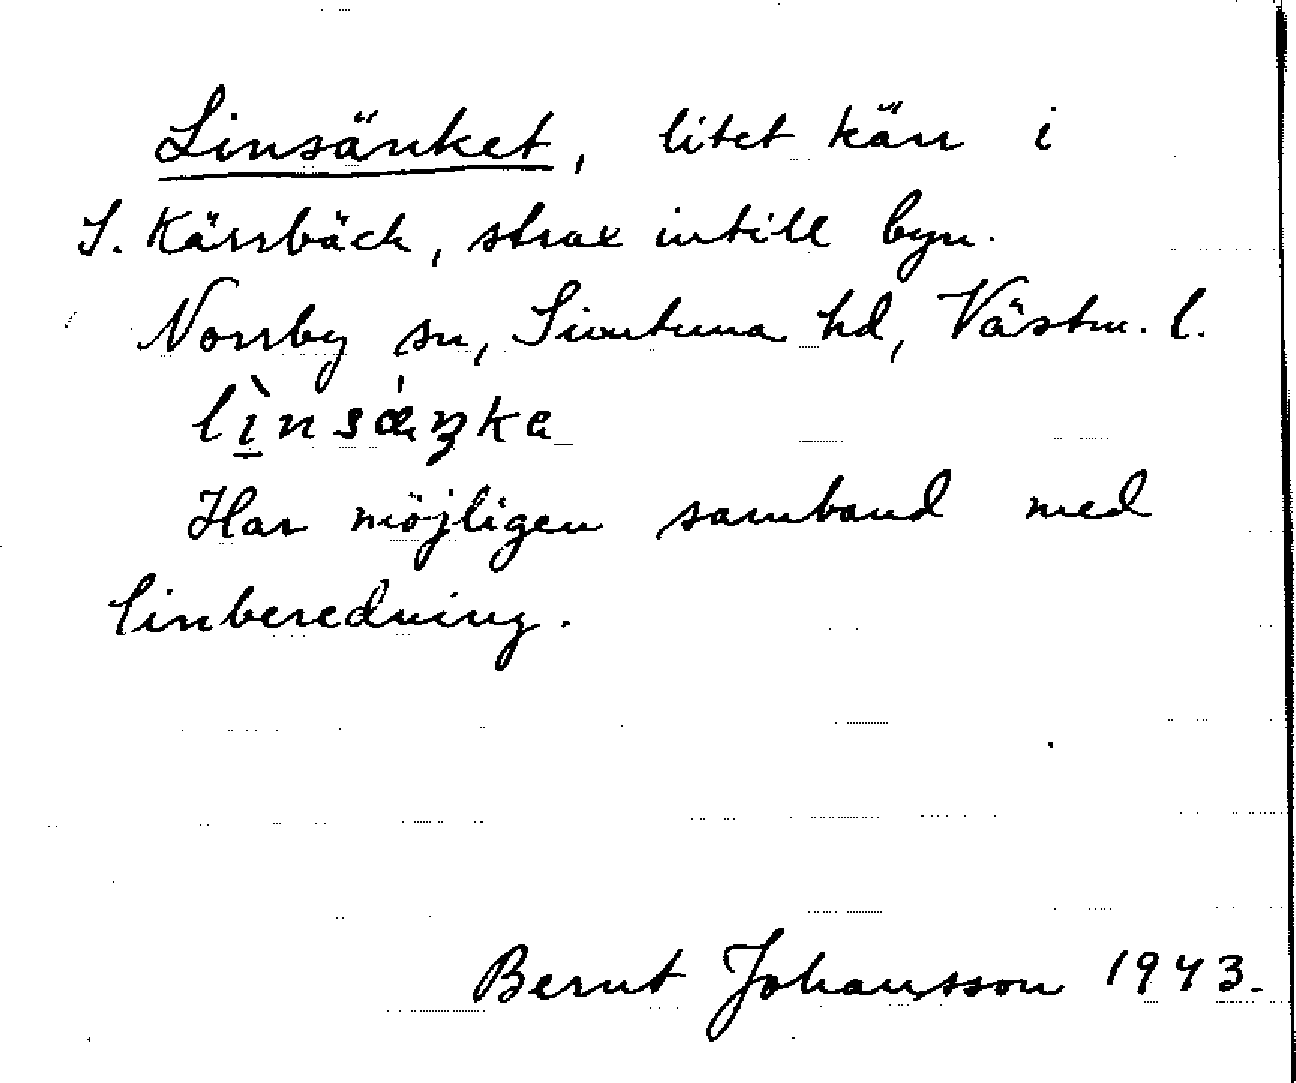 Linsänket, litet kärr i
S. Kärrbäck, strax intill byn.
Norrby sn, Simtuna hd, Västm. l.
lìnsǽŋka
Har möjligen samband med
linberedning.
Bernt Johansson 1943.